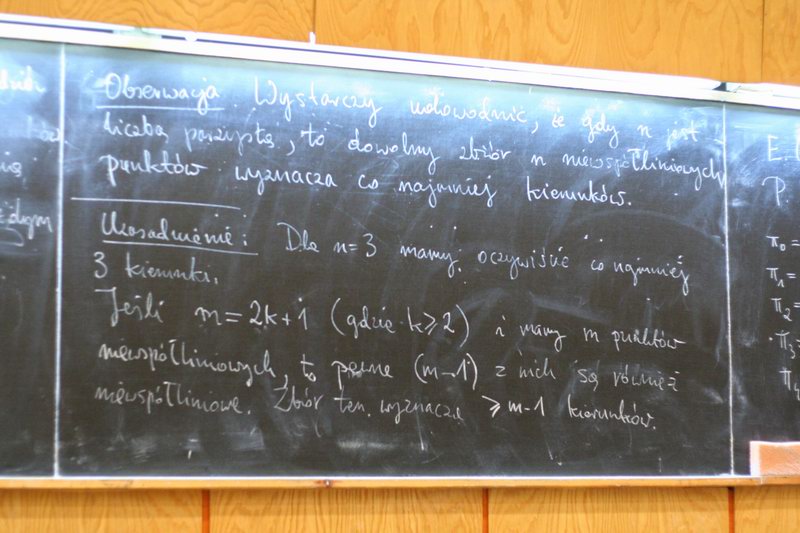 Obserwacja. Wystarczy udowodnić, że gdy n jest
liczbą parzystą, to dowolny zbiór n niewspółliniowych
punktów wyznacza co najmniej kierunków.
Uzasadnienie: Dla n=3 mamy oczywiście co najmniej
3 kierunki.
Jeśli m=2k+1 (gdzie k⩾2) i mamy m punktów
niewspółliniowych, to pewne (m-1) z nich są również
niewspółliniowe. Zbiór ten wyznacza ⩾m-1 kierunków.
E.
P.
π₀=
π₁=
π₂=
π₃=
π₄